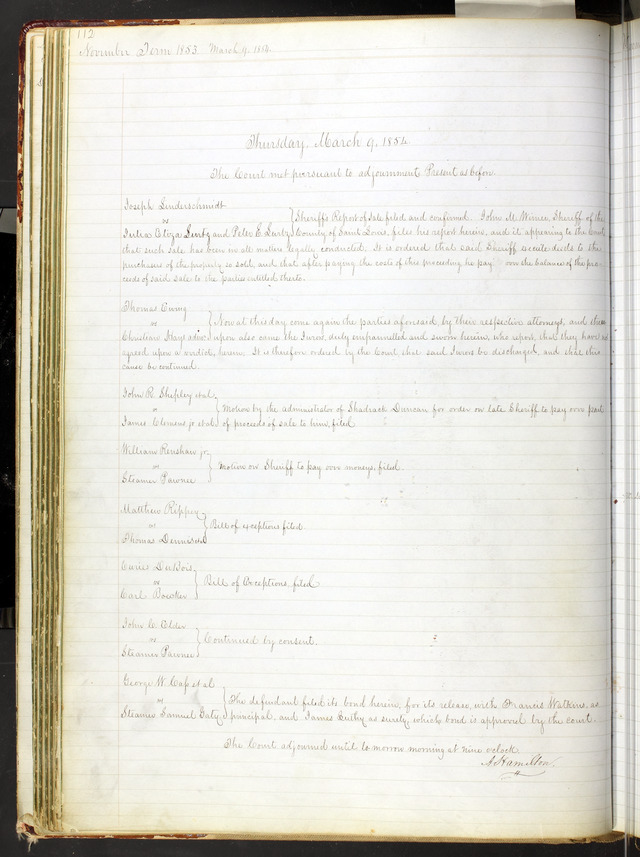 112
November Term 1853 March 9. 1854.
Thursday, March 9, 1854.
The Court met pursuant to adjournment Present as before.
Joseph Linderschmidt
vs
Sheriff's Report of Sale filed and confirmed. John M Wimer, Sheriff of the
and Peter E. County of Saint Louis, files his report herein, and it appearing to the Court
that such sale has been in all matters legally conducted. It is ordered that said Sheriff execute deeds to the
purchasers of the property so sold, and that after paying the costs of this proceeding he pay over the balance of the pro-
ceeds of said sale to the parties entitled thereto.
Thomas Ewing
vs
Now at this day come again the parties aforesaid by their respective attorneys, and
Christian upon also came the Jurors, duly empannelled and sworn herein, who report, that they have not
agreed upon a verdict, herein. It is therefore ordered by the Court that said Jurors be discharged, and that this
cause be continued.
John R. Shepley et al.
vs
Motion by the administrator of Shadrack Duncan for order on late Sheriff to pay over part
James Clemens jr et al. of proceeds of sale to him, filed
William Renshaw jr.
vs
Motion on Sheriff to pay over moneys, filed.
Steamer Pawnee
Matthew Rippey
vs
Bill of exceptions filed.
Thomas
DuBois
vs
Bill of Exceptions, filed
Carl
John C. Elder
vs
Continued by consent.
Steamer Pawnee
George W. et al
vs
The defendant filed its bond herein, for its release, with Francis Watkins, as
Steamer Samuel Gaty principal, and James as surety, which bond is approved by the court.
The Court adjourned until to morrow morning at nine o'clock
A Hamilton